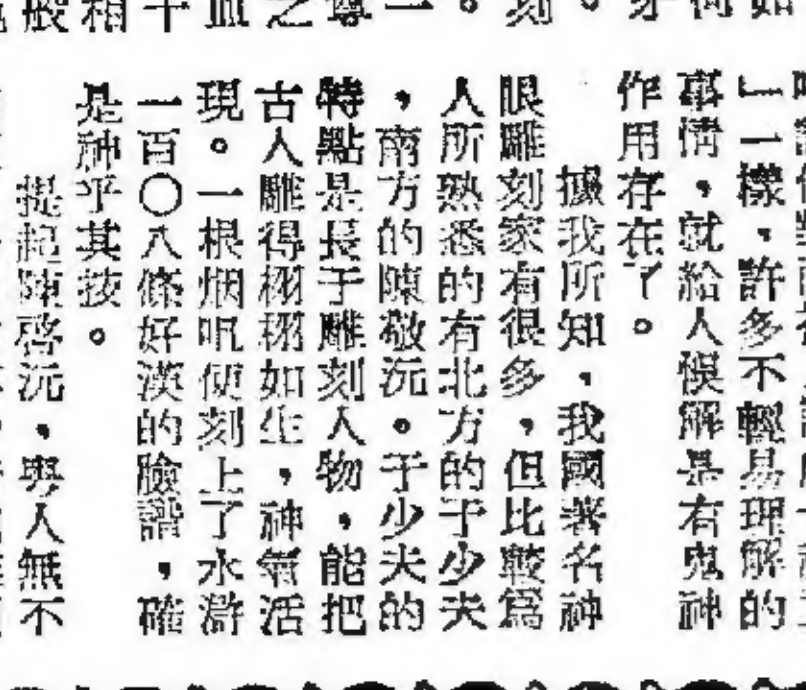 」一樣,許多不輕易理解的
事情,就給人悞解是有鬼神
作用存在了。
據我所知,我國著名神
眼雕刻家有很多,但比較爲
人所熟悉的有北方的于少夫
,南方的陳敬沅。于少夫的
特點是長于雕刻人物,能把
古人雕得栩栩如生,神氣活
現。一根烟呎便刻上了水滸
一百〇八條好漢的臉譜,確
是神乎其技。
提起陳啓沅,與人無不